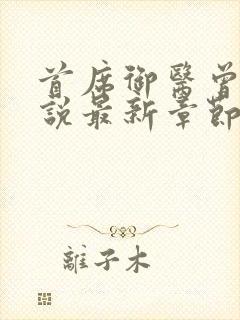 首席御醫曾
說最新章節
離子木